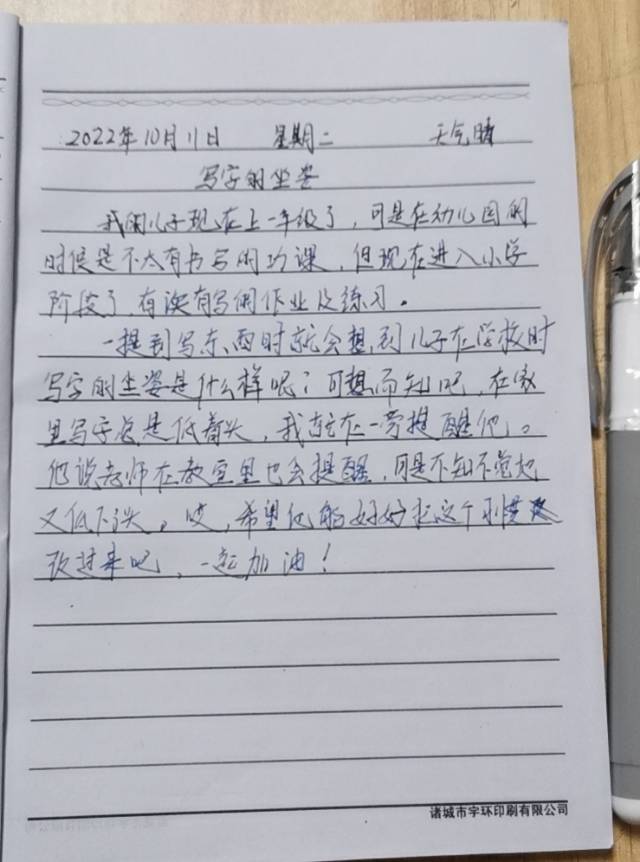 2022年10月11日 星期二 天气晴
写字的坐姿
我的儿子现在上一年级了，可是在幼儿园的
时候是不太有书写的功课，但现在进入小学
阶段了，有读有写的作业及练习。
一提到写东西时就会想到儿子在学校时
写字的坐姿是什么样呢？可想而知吧，在家
里写字总是低着头，我就在一旁提醒他。
他说老师在教室里也会提醒，可是不知不觉地
又低下头，哎，希望他能好好把这个习惯
改过来吧，一起加油！
诸城市宇环印刷有限公司